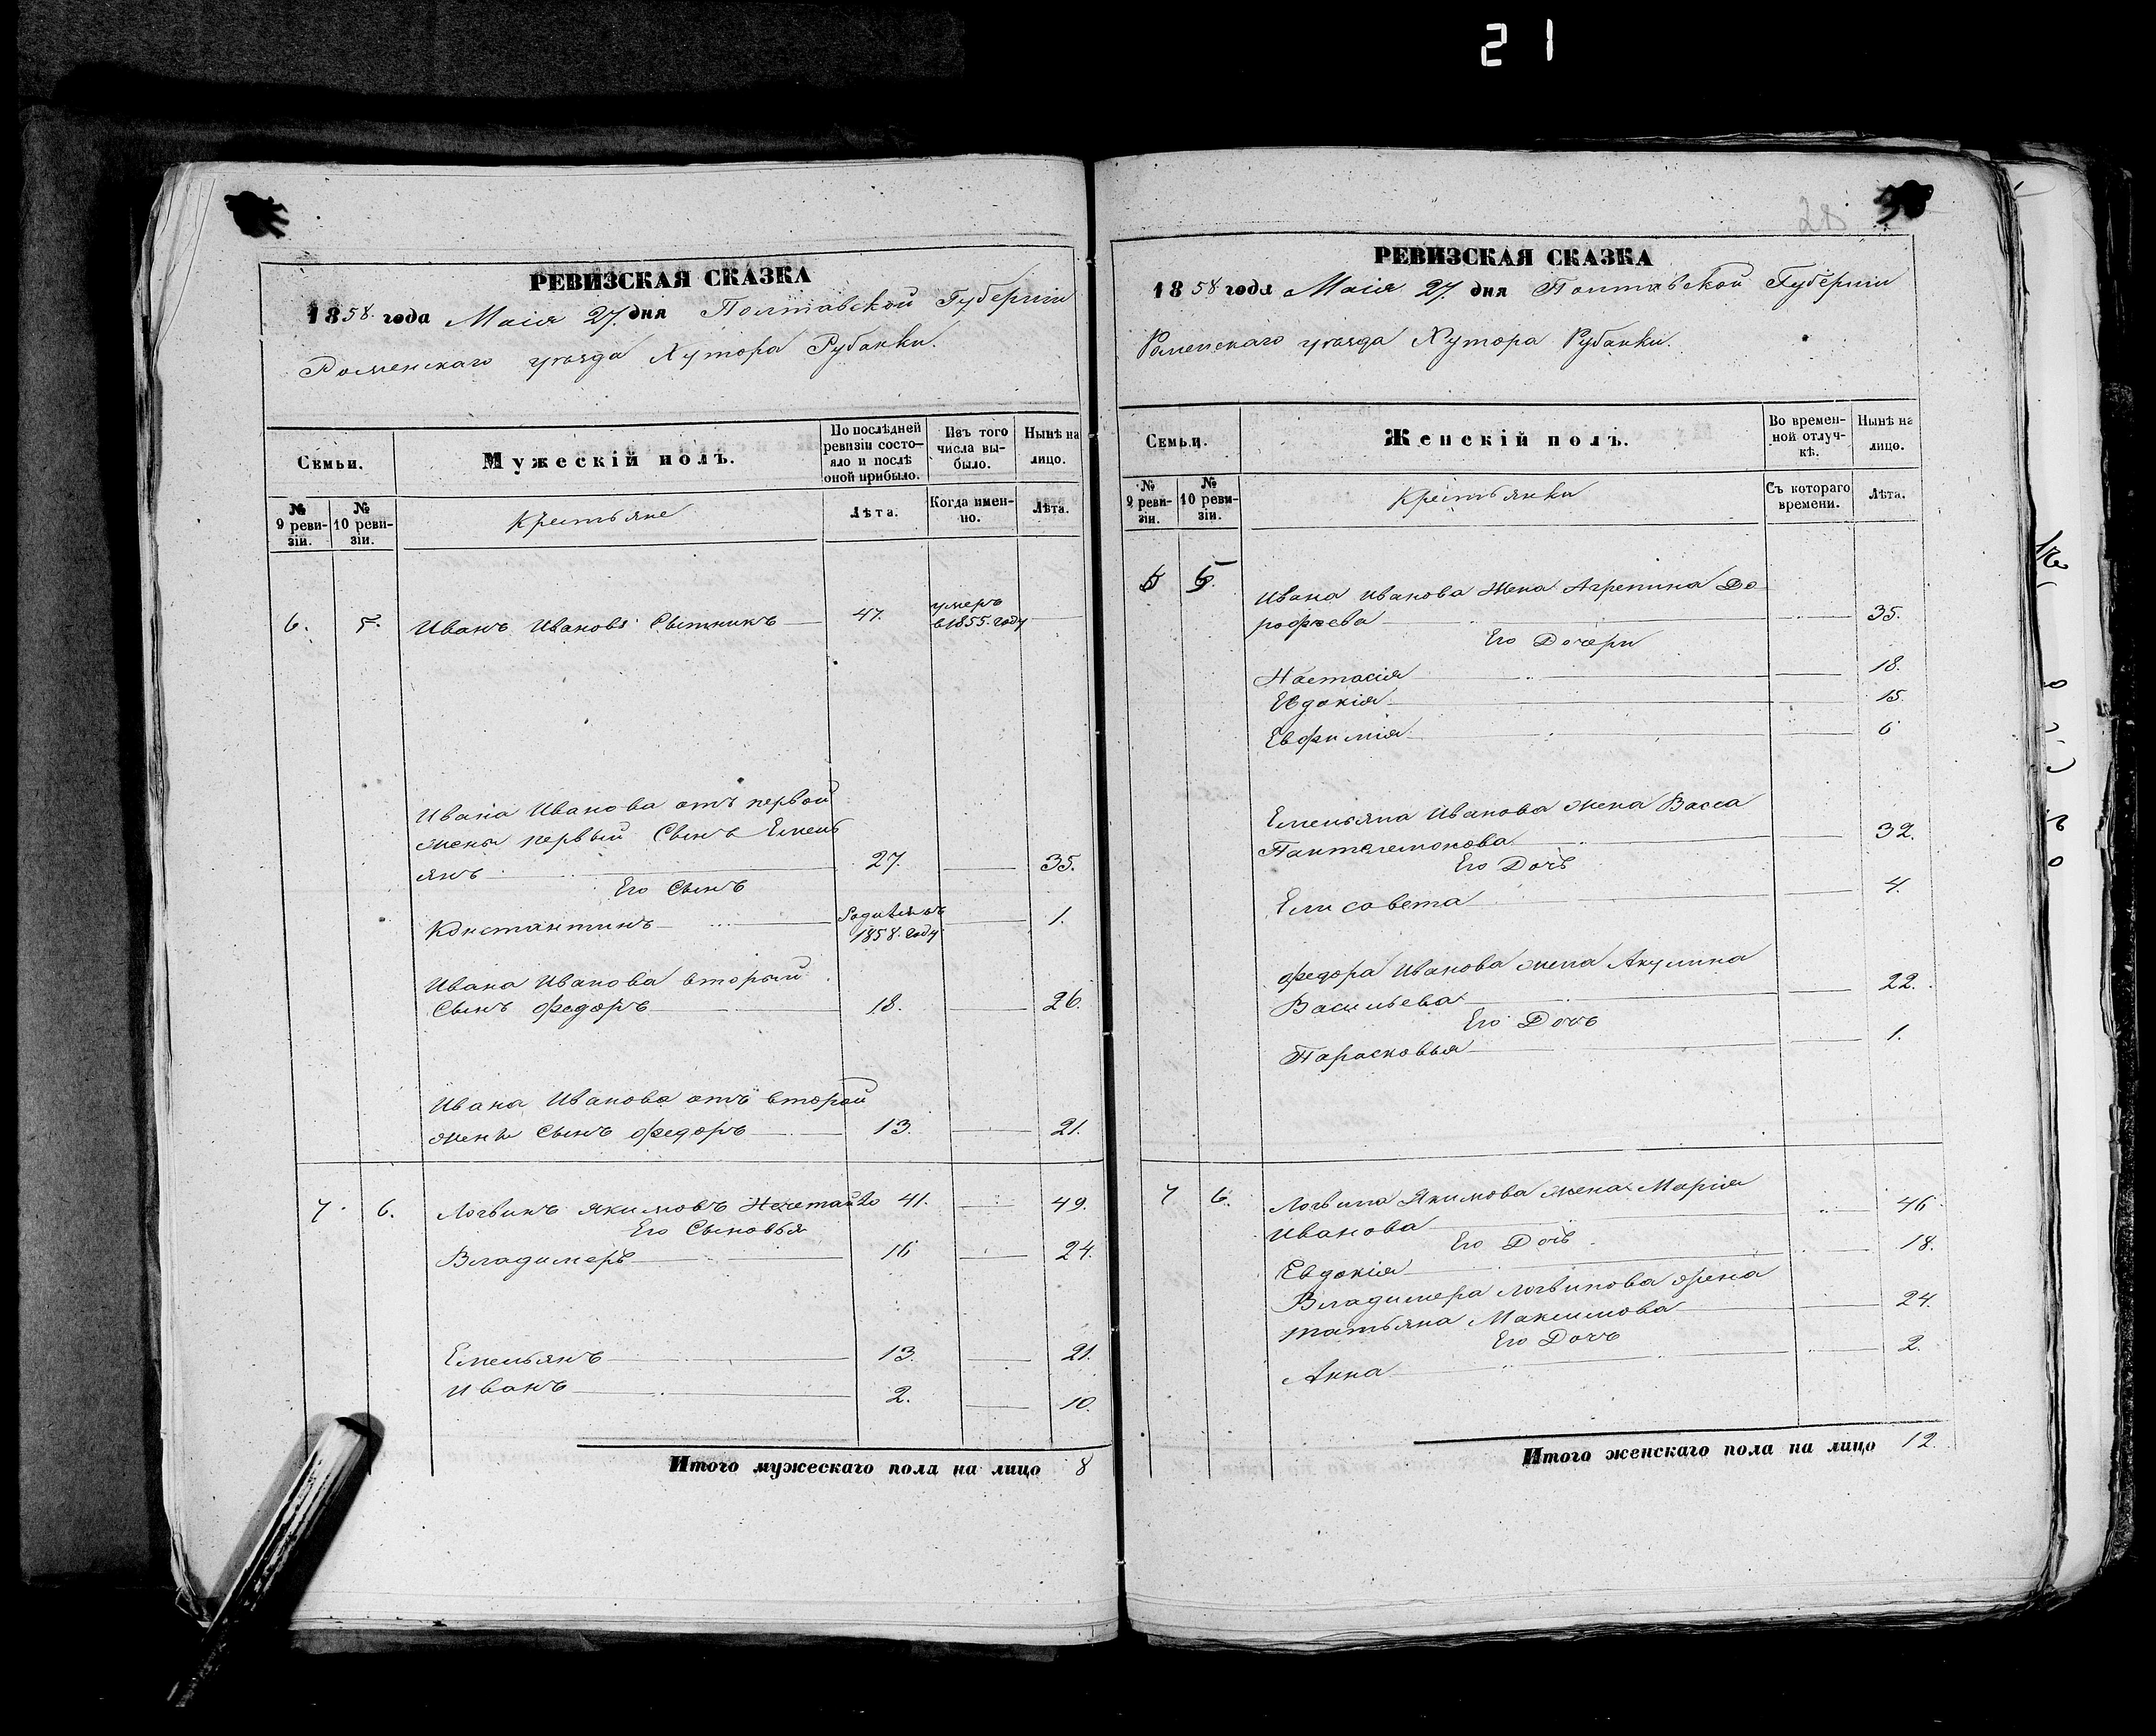 21
РЕВИЗСКАЯ СКАЗКА
1858. года Маія 27. дня Полтавской Губерніи
Роменскаго уѣзда Хутора Рубанки.
Семьи.
Мужескій полъ.
По послѣдней ревизіи состояло и послѣ оной прибыло.
Изъ того числа выбыло.
Нынѣ на лицо.
№ 9 ревизіи.
№ 10 ревизіи.
Крестьяне
Лѣта.
Когда именно.
Лѣта.
6. 5. Иванъ Ивановъ Сытникъ 47. умеръ в 1855. году
Ивана Иванова отъ первой
жены первый Сынъ Емель
янъ 27. 35.
Его Сынъ
Константинъ Родился въ 1858. году 1.
Ивана Иванова вторый
Сынъ Федоръ 18. 26.
Ивана Иванова отъ второй
жены Сынъ Федоръ 13. 21.
7. 6. Логвинъ Якимовъ 41. 49.
Его Сыновья
Владимеръ 16 24.
Емельянъ 13. 21.
Иванъ 2. 10.
Итого мужескаго пола на лицо 8
28
РЕВИЗСКАЯ СКАЗКА
1858 года Маія 27. дня Полтавской Губерніи
Роменскаго уѣзда Хутора Рубанки.
Семьи.
Женскій полъ.
Во временной отлучкѣ.
Нынѣ на лицо.
№ 9 ревизіи.
№ 10 ревизіи.
Крестьянки
Съ котораго времени.
Лѣта.
5. Ивана Иванова Жена Агрепина До
рофѣева 35.
Его Дочери
Настасія 18.
Евдокія 15.
Евфимія 6
Емельяна Иванова жена Васса
Пантелемонова 32.
Его Дочь
Елисавета 4.
Федора Иванова жена Акулина
Васильева 22.
Его Дочь
Парасковья 1.
7 6. Логвина Якимова жена Марія
Иванова 46
Его Дочь
Евдокія 18.
Владимера Логвинова жена
татьяна Максимова 24.
Его Дочь
Анна 2.
Итого женскаго пола на лицо 12.